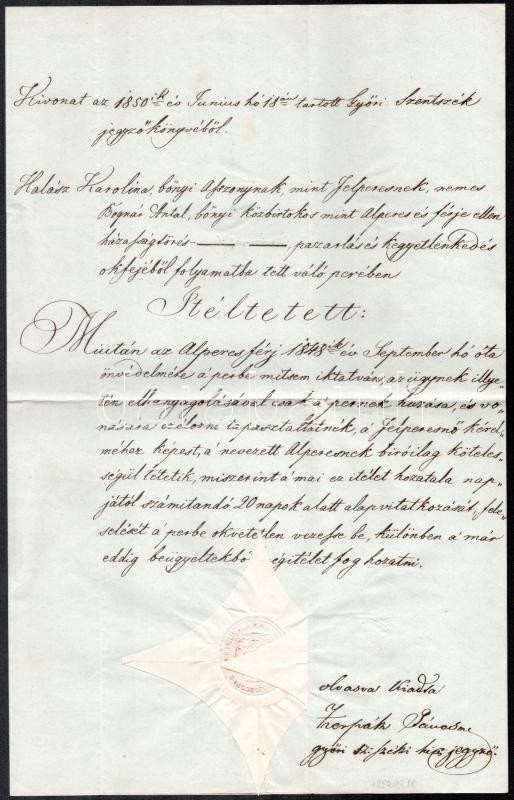 Kivonat az 1850ik év Junius hó 18án tartott Győri Szentszék
jegyzőkönyvéből.
Halász Karolina, bőnyi Aszszonynak, mint Felperesnek, nemes
Bognár Antal, bőnyi közbirtokos mint Alperes és férje ellen
házasságtörés — — —, pazarlás és kegyetlenkedés
okfejéből folyamatba tett váló perében
Itéltetett:
Miután az Alperes férj 1848ik év September hó óta
önvédelmére a perbe mitsem iktatván, az ügynek illye-
tén elhanyagolásával csak a' pernek huzása, és vo-
nására czélozni tapasztaltatnék, a' Felperesnő kérel-
méhez képest, a nevezett Alperesnek biróilag köteles-
ségül tétetik, miszerint a mai ez itélet hozatala nap-
jától számitandó 20 napok alatt alapvitatkozását, fele-
selését a perbe okvetetlen vezesse be, különben a már
eddig beügyeltekbő égitélet fog hozatni.
olvasva kiadta
győri sz. széki jegyző.